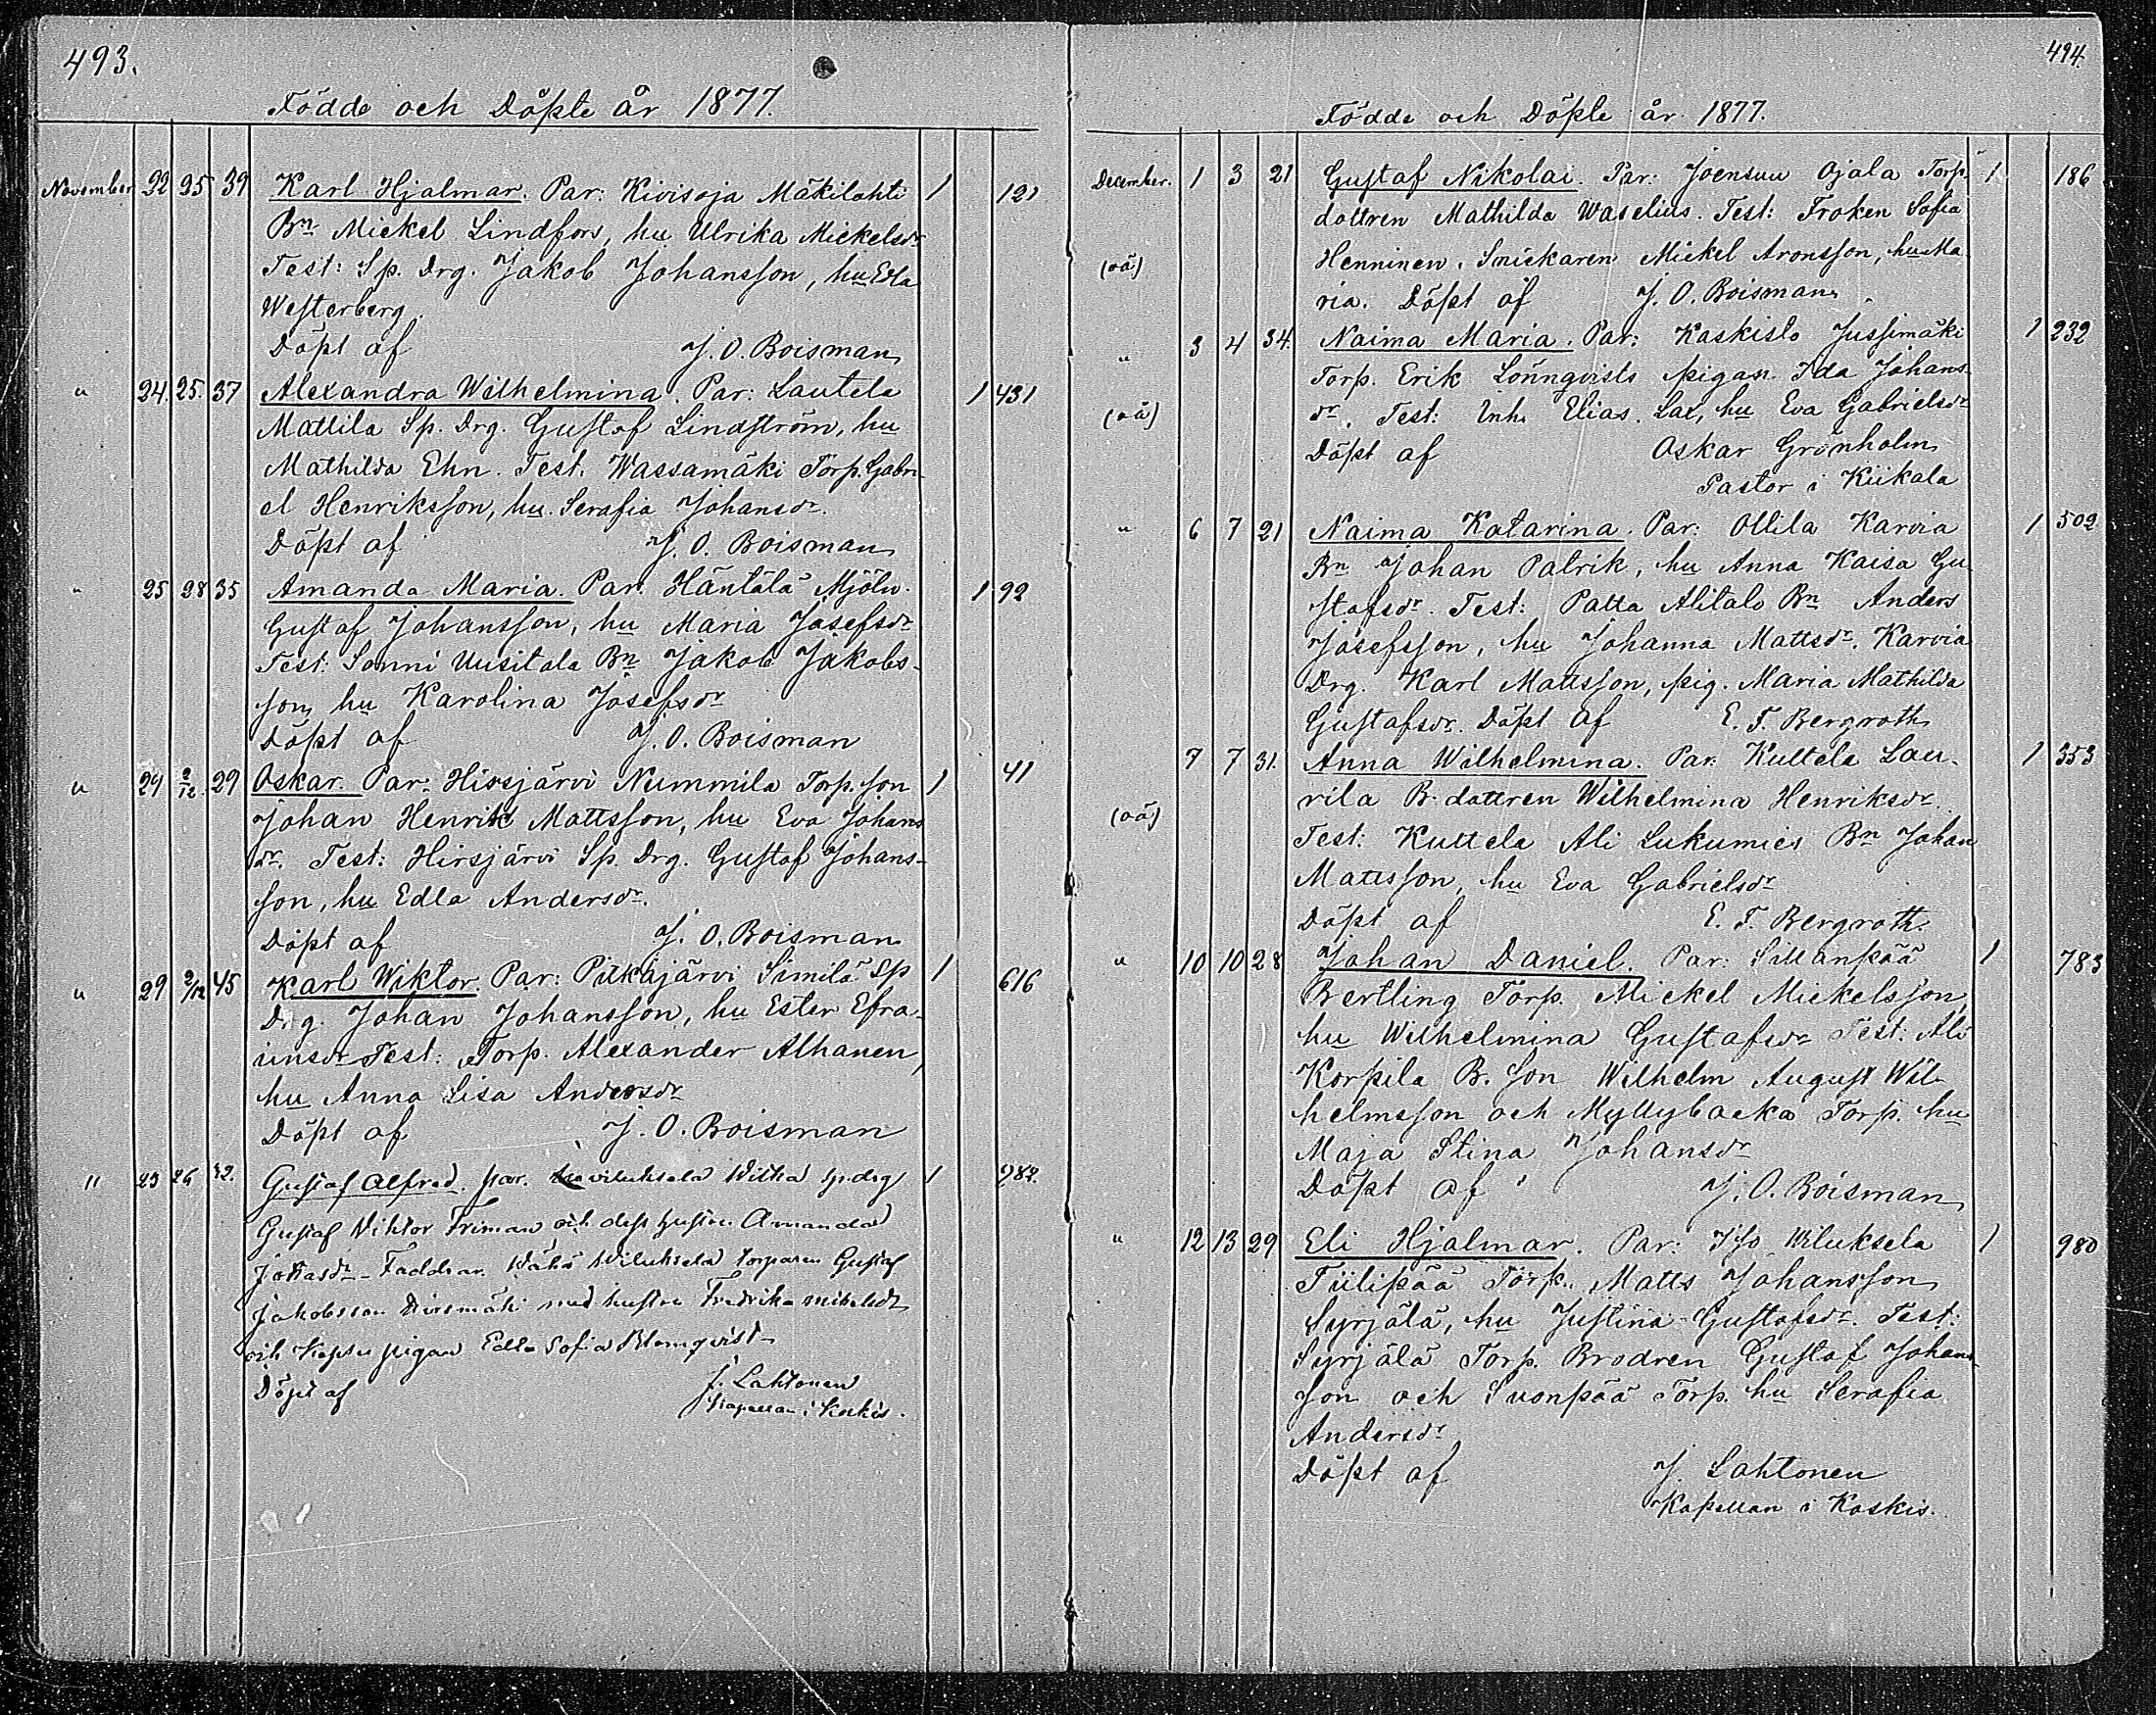 493.
Födde och Döpte år 1877.
November 22 25 39 Karl Hjalmar. Par: Kivisoja Mäkilahti 1 121
Bn Mickel Lindfors, hu Ulrika Mickelsdr
Test: Sp. Drg. Jakob Johansson, hu Edla
Westerberg.
Döpt af J. O. Boisman
" 24. 25. 37 Alexandra Wilhelmina. Par: Lautela 1 431
Mattila Sp. Drg. Gustaf Lindström, hu
Mathilda Ehn. Test. Wassamäki Torp. Gabri-
el Henriksson, hu. Serafia Johansdr.
Döpt af J. O. Boisman
" 25 28 35 Amanda Maria. Par. Häntälä Mjöln. 1 92
Gustaf Johansson, hu Maria Josefsdr
Test: Sonni Uusitala Bn Jakob Jakobs-
son, hu Karolina Josefsdr
Döpt af J. O. Boisman
" 29 2/12 29 Oskar. Par: Hirsjärvi Nummila Torp. son 1 41
Johan Henrik Mattsson, hu Eva Johans
dr. Test: Hirsjärvi Sp. Drg. Gustaf Johans-
son, hu Edla Andersdr.
Döpt af J. O. Boisman
" 29 2/12 45 Karl Wiktor. Par: Pitkäjärvi Similä Sp 1 616
Drg. Johan Johansson, hu Ester Efra-
imsdr Test: Torp. Alexander Alhanen,
hu Anna Lisa Andersdr
Döpt af J. O. Boisman
" 23 26 32. Gustaf Alfred. par. Wilka sp. drg 1 982.
Gustaf Viktor Friman och dess hustru Amanda
Jonasdr - Faddrar. Wähä Wiluksela torparen Gustaf
Jakobsson med hustru Fredrika
och pigan Edla Sofia Blomqvist
Döpt af J. Lahtonen
Kapellan i Koskis.
494.
Födde och Döpte år 1877.
December. 1 3 21 Gustaf Nikolai. Par: Joensuu Ojala Torp. 1 186
dottren Mathilda Waselius. Test: Fröken Sofia
(oä) Henninen. Snickaren Mickel Aronsson, hu Ma-
ria. Döpt af J. O. Boisman.
" 3 4 34. Naima Maria. Par: Kaskisto Jussimäki 1 232
Torp. Erik Lönnqvists pigan Ida Johans-
(oä) dr. Test: Inh. Elias Lax, hu Eva Gabrielsdr
Döpt af Oskar Grönholm
Pastor i Kiikala
" 6 7 21 Naima Katarina. Par: Ollila Karvia 1 502
Bn Johan Patrik, hu Anna Kaisa Gu-
stafsdr. Test: Patta Alitalo Bn Anders
Josefsson, hu Johanna Mattsdr. Karvia
Drg. Karl Mattsson, pig. Maria Mathilda
Gustafsdr. Döpt af E. F. Bergroth
7 7 31. Anna Wilhelmina. Par: Kuttela Lau- 1 353
rila B. dottren Wilhelmina Henriksdr.
(oä) Test: Kuttela Ali Lukumies Bn Johan
Mattsson, hu Eva Gabrielsdr
Döpt af E. F. Bergroth.
" 10 10 28 Johan Daniel. Par: Sillanpää 1 783
Bertling Torp. Mickel Mickelsson,
hu Wilhelmina Gustafsdr Test: Ali
Korpila B. son Wilhelm August Wil-
helmsson och Myllybacka Torp. hu
Maja Stina Johansdr
Döpt af J. O. Boisman
" 12 13 29 Eli Hjalmar. Par: Iso Wiluksela 1 980
Tiilipää Torp. Matts Johansson
Syrjälä, hu Justina Gustafsdr. Test:
Syrjälä Torp. Brodren Gustaf Johans-
son och Suonpää Torp. hu Serafia
Andersdr
Döpt af J. Lahtonen
Kapellan i Koskis.